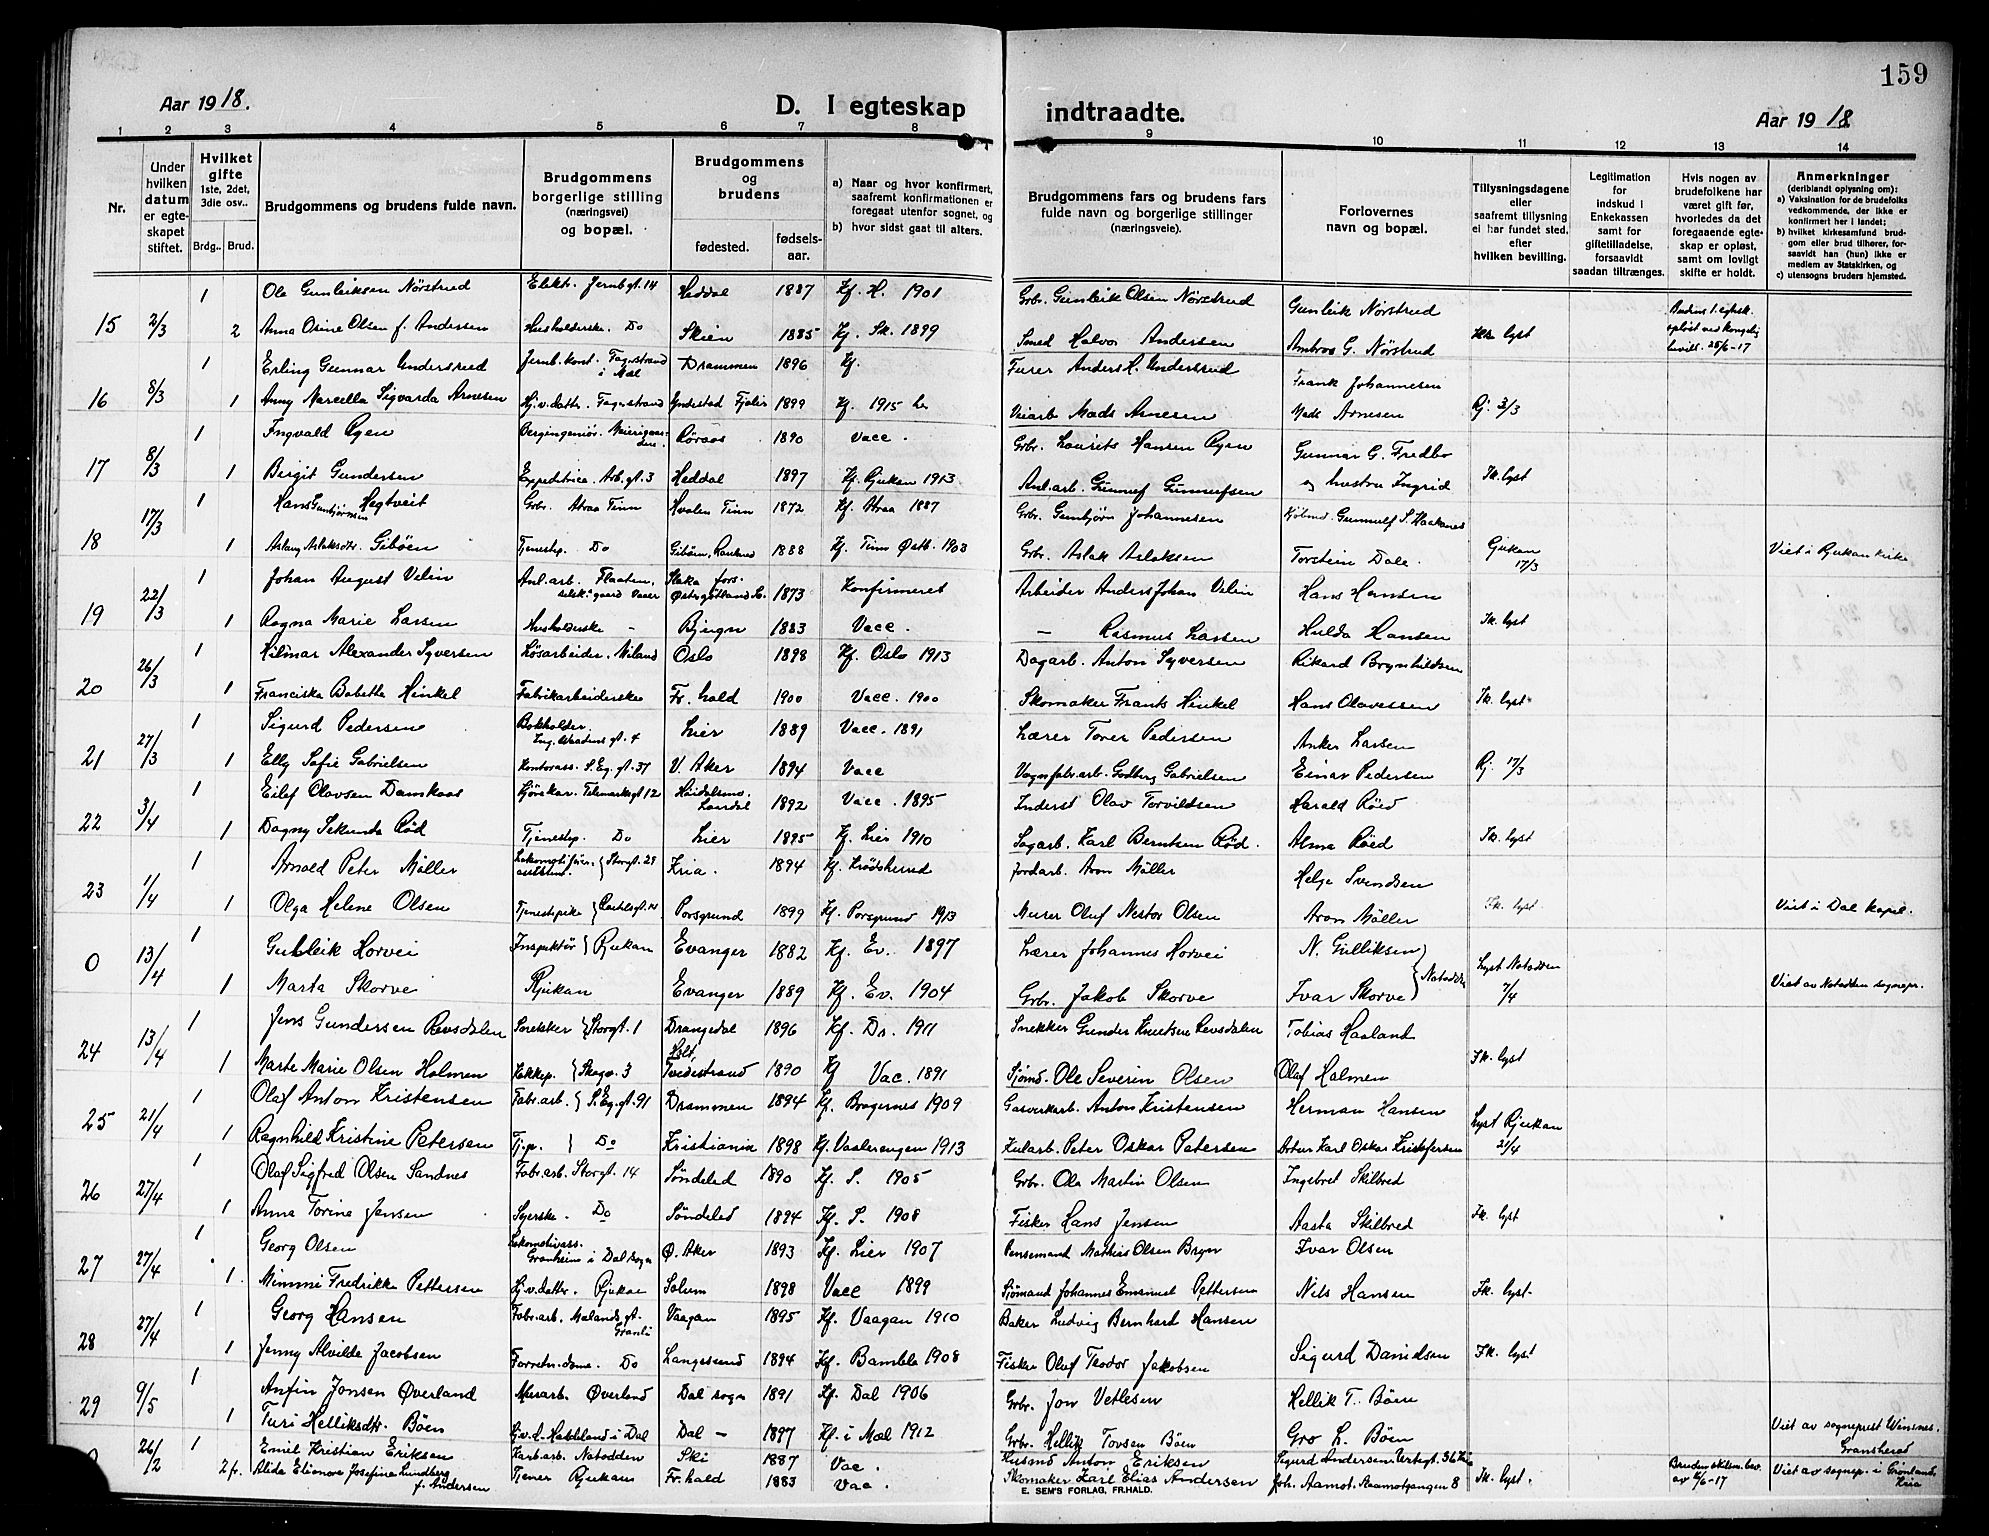 159
Aar 1918.
D. I egteskap indtraadte.
Aar 1918
1 2 3 4 5 6 7 8 9 10 11 12 13 14
Nr.
Under hvilken datum er egteskapet stiftet.
Hvilket gifte 1ste, 2det, 3die osv..
Brdg.. Brud.
Brudgommens og brudens fulde navn.
Brudgommens borgerlige stilling (næringsvei) og bopæl.
Brudgommens og brudens
fødested.
fødselsaar.
a) Naar og hvor konfirmert, saafremt konfirmationen er foregaat utenfor sognet, og
b) hvor sidst gaat til alters.
Brudgommens fars og brudens fars fulde navn og borgerlige stillinger (næringsveie).
Forlovernes navn og bopæl.
Tillysningsdagene eller saafremt tillysning ei har fundet sted, efter hvilken bevilling.
Legitimation for indskud i Enkekassen samt for giftetilladelse, forsaavidt saadan tiltrænges.
Hvis nogen av brudefolkene har været gift før, hvorledes da det foregaaende egteskap er opløst, samt om lovligt skifte er holdt.
Anmerkninger (deriblandt oplysning om):
a) Vaksination for de brudefolks vedkommende, der ikke er konfirmert her i landet;
b) hvilket kirkesamfund brudgom eller brud tilhører, forsaavidt han (hun) ikke er medlem av Statskirken, og
c) utensogns bruders hjemsted.
1 Ole Gunleiksen Nørstrud Elekt. Jernbgt. 14 Heddal 1887 Kf. H. 1901 Grbr. Gunleik Olsen Nørstrud Gunleik Nørstrud
15 2/3 2 Anna Osine Olsen f. Andersen Husholderske. Do Skien 1885 Kf. Sk. 1899 Smed Halvor Andersen Ambros G. Nørstrud lyst Brudens 1. egtesk. opløst ved kongelig bevill. 25/6-17
1 Erling Gunnar Undersrud Jernb. konst. Fagerstrand i Mæl Drammen 1896 Kf. Furer Anders H. Undersrud Frank Johannesen
16 8/3 1 Anny Narcilla Sigvarda Arnesen Hj.v. datter. Fagerstrand 1899 Kf. 1915 her Veiarb Mads Arnesen Mads Arnesen Rj. 3/3
1 Ingvald Ryen Bergingeniør. Røraas 1890 Vacc. Grbr. Laurits Hansen Ryen Gunnar G. Fredbo
17 8/3 1 Birgit Gundersen Expeditrice. Arb.gt. 3 Heddal 1897 Kf. Rjukan 1913 Anl.arb. Gunnuf Gunnufsen og hustru Ingrid Fk. lyst
1 Hans Gunbjørnsen Hegtveit Grbr. Atraa Tinn Hvalen Tinn 1872 Kf. Atraa 1887 Grbr. Gunbjørn Johannesen Kjøbmd. Gunnulf S. Haakanes
18 17/3 1 Aslaug Aslaksdtr. Gibøen Tjenestep. Do 1888 Kf. Tinn Østb. 1903 Grbr. Aslak Aslaksen Torstein Dale. Rjukan 17/3 Viet i Rjukan kirke
1 Johan August Velin Anl.arb. Flaaten, Slaka fors. Østergøtland 1873 Konfirmeret Arbeider Anders Johan Velin Hans Hansen
19 22/3 1 Ragna Marie Larsen Husholderske - Bjugn 1883 Vacc. - Rasmus Larsen Hulda Hansen Fk. lyst
1 Hilmar Alexander Syversen Løsarbeider. Niland Oslo 1898 Kf. Oslo 1913 Dagarb. Anton Syversen Rikard Brynhildsen
20 26/3 1 Franciska Babette Hinkel Fabrikarbeiderske Fr. hald 1900 Vacc. 1900 Skomaker Frants Hinkel Hans Olavessen Fk. lyst
1 Sigurd Pedersen Bokholder. Lier 1889 Vacc. 1891 Lærer Torer Pedersen Anker Larsen
21 27/3 1 Elly Sofie Gabrielsen Kontorass. S. Eg. gt. 37 V. Aker 1894 Vacc Vognfabr.arb. Godberg Gabrielsen Einar Pedersen Rj. 17/3
1 Eilef Olavsen Damkaas Kjørekar. Telemarksgt 12 Laardal 1892 Vacc. 1895 Inderst Olav Torvildsen Harald Røed
22 3/4 1 Dagny Sekunda Rød Tjenestep. Do Lier 1895 Kf. Lier 1910 Sagarb. Karl Berntsen Rød. Alma Røed Fk. lyst
1 Arnold Peter Møller Storgt. 29 Kria. 1894 Kf. Krødsherred Jordarb. Aron Møller Helge Svendsen
23 1/4 1 Olga Helene Olsen Tjenestepike Porsgrund 1899 Kf. Porsgrund 1913 Murer Oluf Nestor Olsen Aron Møller Fk. lyst Viet i Dal kapel.
1 Gulleik Horvei Inspektør Rjukan Evanger 1882 Kf. Ev. 1897 Lærer Johannes Horvei N. Gulliksen
0 13/4 1 Marta Skorve Rjukan Evanger 1889 Kf. Ev. 1904 Grbr. Jakob Skorve Ivar Skorve Notodden Lyst Notodden 7/4 Viet av Notodden sognepr.
1 Jens Gundersen Revsdalen Snekker Storgt. 1 Drangedal 1896 Kf. Dr. 1911 Snekker Gunder Knutsen Revsdalen Tobias Haaland
24 13/4 1 Marte Marie Olsen Holmen Kokkep. Skogv. 3 Holt, Tvedestrand 1890 Kf Vac. 1891 Sjømd. Ole Severin Olsen Olaf Holmen Fk. lyst
1 Olaf Anton Kristensen Fabr.arb. S. Eg. gt. 91 Drammen 1894 Kf. Bragernes 1909 Gasverkarb. Anton Kristensen Herman Hansen
25 21/4 1 Ragnhild Kristine Petersen Tj.p. Do Kristiania 1898 Kf. Vaalerengen 1913 Kularb. Peter Oskar Petersen Artur Karl Oskar Kristofersen Lyst Rjukan 21/4
1 Olaf Sigfred Olsen Sandnes Fabr.arb. Storgt. 14 Søndeled 1890 Kf. S. 1905 Grbr. Ola Martin Olsen Ingebret Skilbred
26 27/4 1 Anna Torine Jensen Syerske. Do Søndeled 1894 Kf. S. 1908 Fisker Hans Jensen Aasta Skilbred Fk. lyst
1 Georg Olsen Lokomotivass. Granheim i Dal sogn Ø. Aker 1893 Kf. Lier 1907 Pensemand Mathias Olsen Bryn Ivar Olsen
27 27/4 1. Mimmi Fredrikke Pettersen Hj.v. datter. Rjukan Solum 1898 Vacc 1899 Sjømand Johannes Emanuel Pettersen Nils Hansen Fk. lyst.
1 Georg Hansen Fabr.arb. Mælandsgt. Granli Vaagan 1895 Kf. Vaagan 1910 Baker Ludvig Bernhard Hansen
28 27/4 1 Jenny Alvilde Jacobsen Forretn.dame. Do Langesund 1894 Kf. Bamble 1908 Fisker Oluf Teodor Jakobsen Sigurd Danielsen Fk. lyst
1 Anfin Jonsen Øverland Murarb. Øverland Dal sogn 1891 Kf. Dal 1906 Grbr. Jon Vetlesen Hellik T. Bøen
29 9/5 1 Turi Helliksdtr. Bøen Dal - 1897 Kf. i Mæl 1912 Grbr. Hellik Tovsen Bøen Gro L. Bøen Viet av sogneprest Winsnes. Gransherad
26/2 1 Emil Kristian Eriksen Karb.arb. Notodden Ski 1887 Vac. Husmd Anton Eriksen Sigurd Andersen
2 fr. Alida Elionora Josefine Lundberg f. Andersen Tjener Rjukan Fr. hald 1883 Vac. Skomaker Karl Elias Andersen Joh. Aamot. Aamotgangen 8 Fk. lyst. Bruden skilsm. bev. av 6/6-17 Viet av sognep. i Grønland, Kria
E. SEM'S FORLAG, FR.HALD.